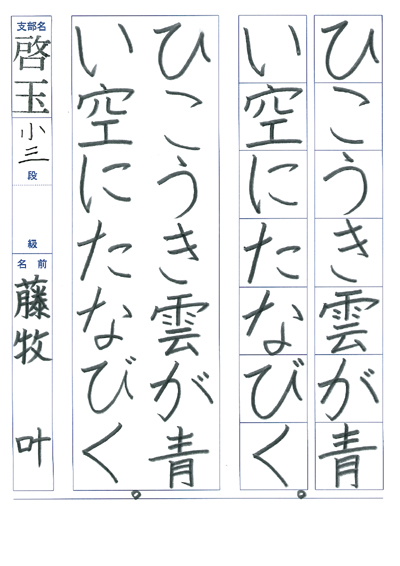 ひこうき雲が青
い空にたなびく
ひこうき雲が青
い空にたなびく
支部名
啓玉
小三
段
級
名前
藤牧 叶